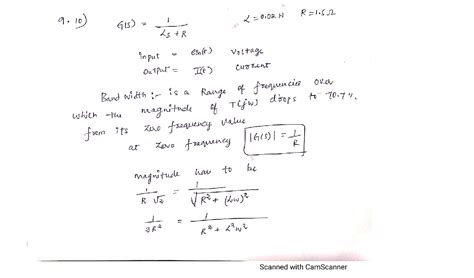 9.10) G(s) = 1 / (Ls + R)   L = 0.02 H   R = 1.5 Ω
input = ein(t) voltage
output = I(t) current
Band width :- is a Range of frequencies over
which the magnitude of T(jω) drops to 70.7%
from its zero frequency value
at zero frequency |G(s)| = 1/R
magnitude has to be
1 / (R √2) = 1 / √(R² + (Lω)²)
1 / 2R² = 1 / (R² + L²ω²)
Scanned with CamScanner